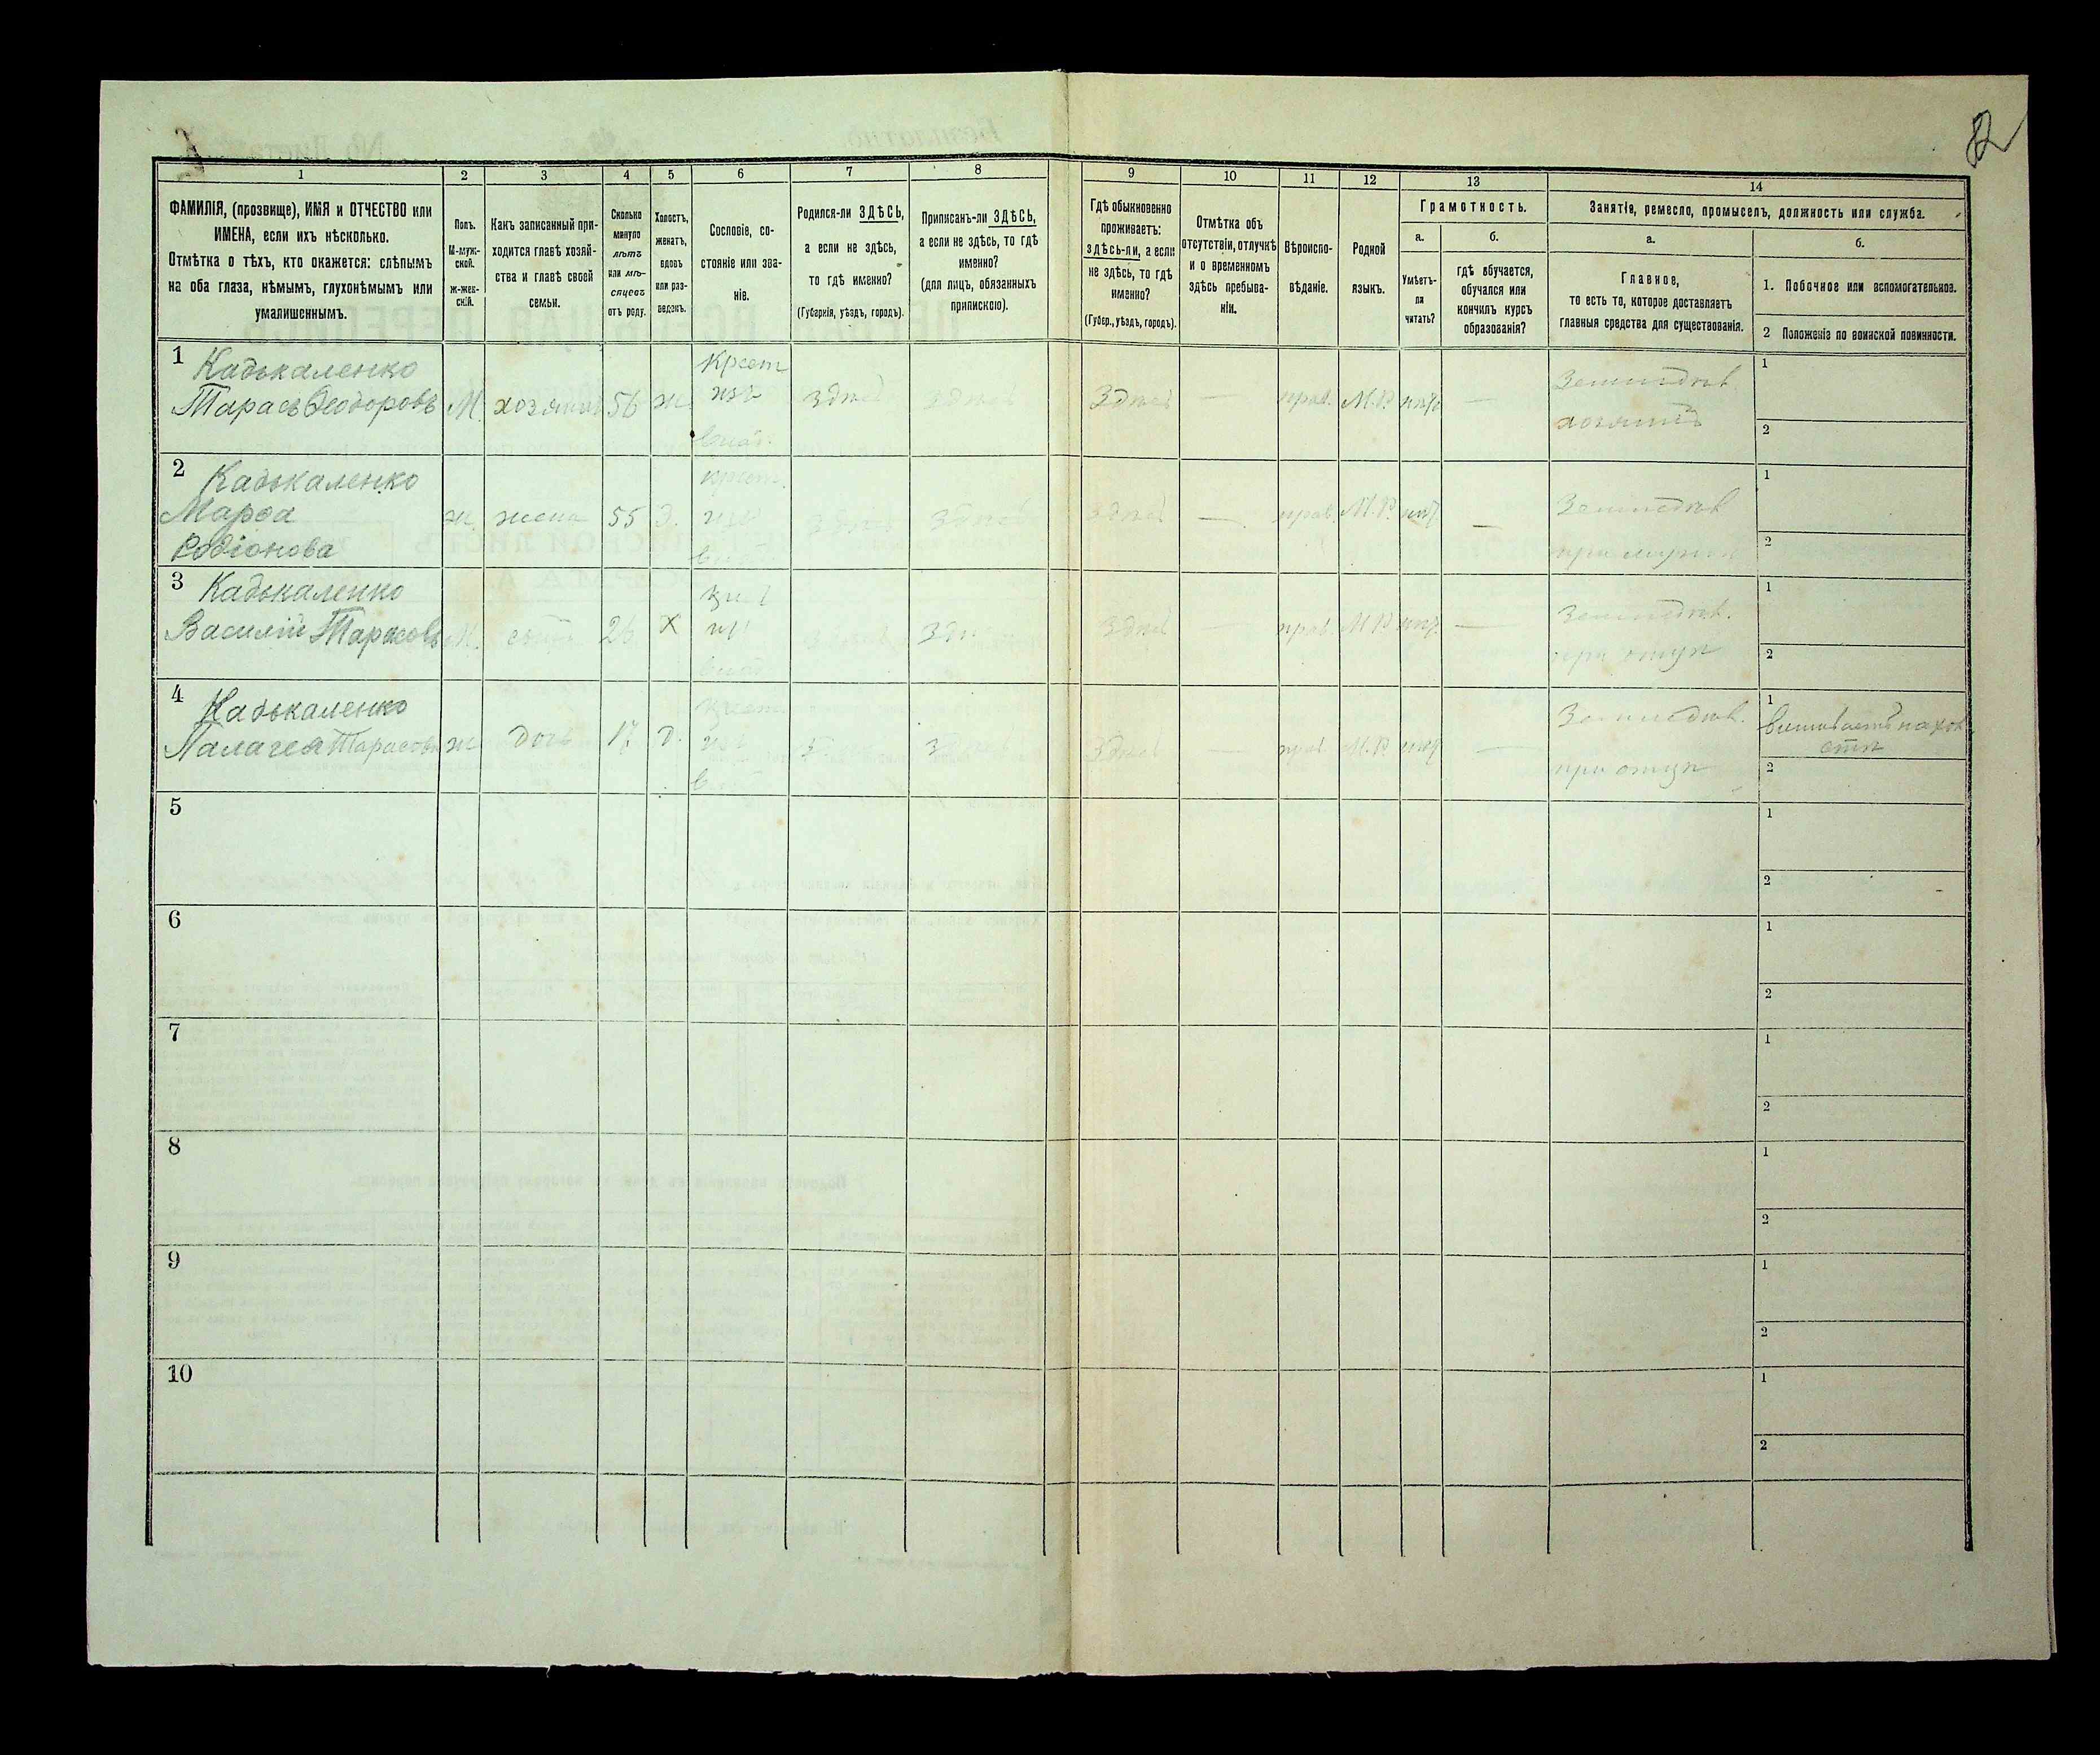 1
2
3
4
5
6
7
8
9
10
11
12
13
14
ФАМИЛІЯ, (прозвище), ИМЯ и ОТЧЕСТВО или
ИМЕНА, если ихъ нѣсколько.
Отмѣтка о тѣхъ, кто окажется: слѣпымъ
на оба глаза, нѣмымъ, глухонѣмымъ или
умалишеннымъ.
Полъ.
М-муж-
ской.
ж-жен-
скій.
Какъ записанный при-
ходится главѣ хозяй-
ства и главѣ своей
семьи.
Сколько
минуло
лѣтъ
или мѣ-
сяцевъ
отъ роду.
Холостъ,
женатъ,
вдовъ
или раз-
веденъ.
Сословіе, со-
стояніе или зва-
ніе.
Родился-ли ЗДѢСЬ,
а если не здѣсь,
то гдѣ именно?
(Губернія, уѣздъ, городъ).
Приписанъ-ли ЗДѢСЬ,
а если не здѣсь, то гдѣ
именно?
(для лицъ, обязанныхъ
припискою).
Гдѣ обыкновенно
проживаетъ:
здѣсь-ли, а если
не здѣсь, то гдѣ
именно?
(Губер., уѣздъ, городъ).
Отмѣтка объ
отсутствіи, отлучкѣ
и о временномъ
здѣсь пребыва-
ніи.
Вѣроиспо-
вѣданіе.
Родной
языкъ.
Грамотность.
а.
Умѣетъ-
ли
читать?
б.
гдѣ обучается,
обучался или
кончилъ курсъ
образованія?
Занятія, ремесло, промыселъ, должность или служба.
а.
Главное,
то есть то, которое доставляетъ
главныя средства для существованія.
б.
1. Побочное или вспомогательное.
2 Положеніе по воинской повинности.
1 Кадькаленко
Тарасъ Ѳеодоровъ М. хозяинъ 56 ж.
Крест
изъ
здѣсь здѣсь здѣсь — прав. М.Р. нѣтъ —
Земледѣл.
хозяинъ
1
2
2 Кадькаленко
Марѳа
Родіонова
ж. жена 55 З.
крест.
здѣсь здѣсь — прав. М.Р. нѣт —
Земледѣл
при мужѣ
1
2
3 Кадькаленко
Василій Тарасовъ М. сынъ Х
здѣсь — прав. М.Р. нѣт. —
Земледѣл.
при отцѣ
1
2
4 Кадькаленко
Палагея Тарасова ж дочь 17 д.
здѣсь — прав. М.Р. нѣт —
Земледѣл.
при отцѣ
1
2
5
1
2
6
1
2
7
1
2
8
1
2
9
1
2
10
1
2